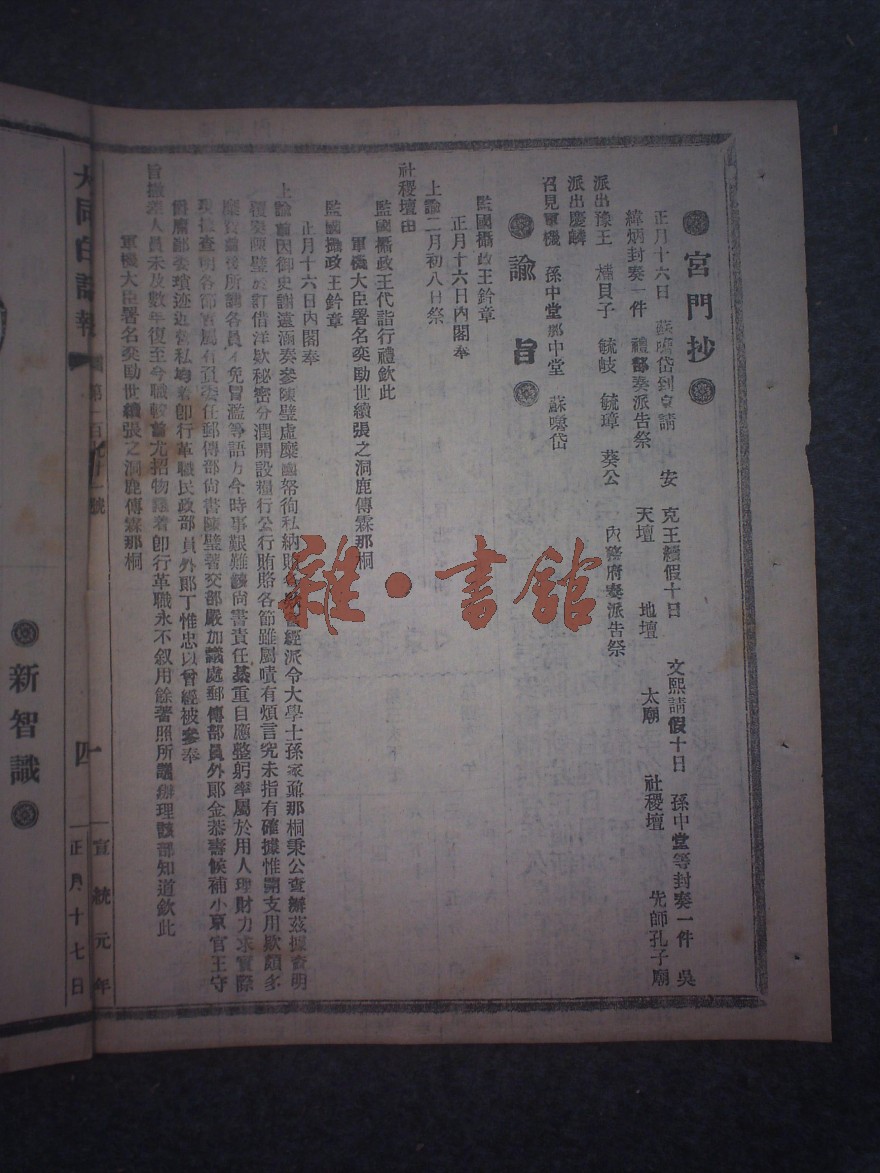 宮門抄
正月十六日 蘇嚕岱到京請 安 克王續假十日 文熙請假十日 孫中堂等封奏一件 吳
緯炳封奏一件 禮部奏派告祭 天壇 地壇 太廟 社稷壇 先師孔子廟
派出豫王 橚貝子 毓岐 毓璋 葵公 內務府奏派告祭
派出慶麟
召見軍機 孫中堂 那中堂 蘇嚕岱
諭旨
監國攝政王鈐章
正月十六日內閣奉
上諭二月初八日祭
社稷壇由
監國攝政王代詣行禮欽此
軍機大臣署名奕劻世續張之洞鹿傳霖那桐
監國攝政王鈐章
正月十六日內閣奉
上諭前因御史謝遠涵奏參陳璧虛糜國帑徇私納賄各款曾經派令大學士孫家鼐那桐秉公查辦茲據查明
覆奏陳璧於訂借洋款秘密分潤開設糧行公行賄賂各節雖屬嘖有煩言究未指有確據惟開支用款頗多
糜費前後所調各員不免冒濫等語方今時事艱難該尚書責任綦重自應整躬率屬於用人理財力求實際
現據查明各節實屬有負委任郵傳部尚書陳璧著交部嚴加議處郵傳部員外郎金恭壽候補小京官王守
爵廉鄙委瑣迹近營私均著即行革職民政部員外郎丁惟忠以曾經被參奉
旨撤差人員未及數年復至今職較前尤招物議著即行革職永不叙用餘著照所議辦理該部知道欽此
軍機大臣署名奕劻世續張之洞鹿傳霖那桐
大同白話報 第百九十一號 四 宣統元年 正月十七日
新智識
雜·書館